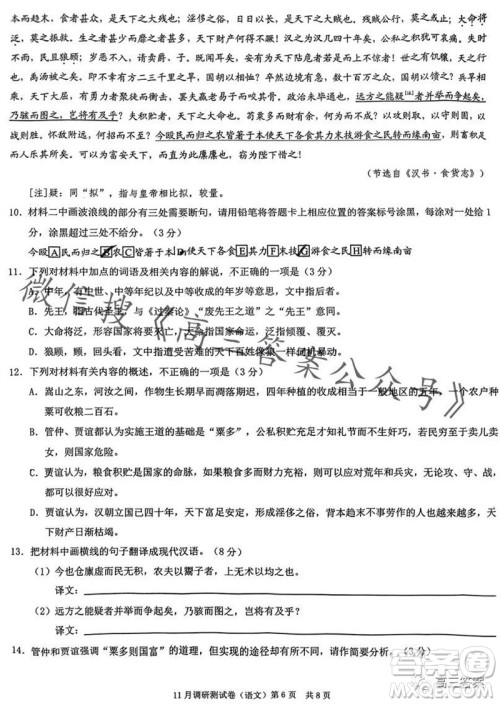 本而趋末，食者甚众，是天下之大残也；淫侈之俗，日日以长，是天下之大贼也。残贼公行，莫之或止；大命将
泛，莫之振救。生之者甚少而靡之者甚多，天下财产何得不蹶！汉之为汉几四十年矣，公私之积犹可哀痛。失时
不雨，民且狼顾；岁恶不入，请卖爵子。既闻耳矣，安有为天下阽危者若是而上不惊者！世之有饥穰，天之行也，
禹、汤被之矣。即不幸有方二三千里之旱，国胡以相恤？卒然边境有急，数十百万之众，国胡以馈之？兵旱相
乘，天下大屈，有勇力者聚徒而衡击，罢夫羸老易子而咬其骨。政治未毕通也，远方之能疑[注]者并举而争起矣，
乃骇而图之，岂将有及乎？夫积贮者，天下之大命也。苟粟多而财有余，何为而不成？以攻则取，以守则固，以
战则胜。怀敌附远，何招而不至？今殴民而归之农皆著于本使天下各食其力末技游食之民转而缘南亩，则畜积足
而人乐其所矣。可以为富安天下，而直为此廪廪也，窃为陛下惜之！
（节选自《汉书·食货志》）
[注]疑：同“拟”，指与皇帝相比拟、对抗。
10．材料二中画波浪线的部分有三处需要断句，请用铅笔将答题卡上相应位置的答案标号涂黑，每涂对一处给1
分，涂黑超过三处不给分。（3分）
11．下列对材料中加点的词语及相关内容的解说，不正确的一项是（3分）
A．中年，有中世、中等年纪以及中等收成的年岁等意思，文中指后者。
B．先王，指古代圣王，与《过秦论》“废先王之道”之“先王”意同。
C．大命将泛，指王朝、国家的命运将要沉覆了，大命指国家的命运。
D．狼顾，顾，回头看，文中指天下百姓像狼一样伺机暴动。
12．下列对材料有关内容的概述，不正确的一项是（3分）
A．嵩山之东，河汝之间，作物生长期早而凋落期迟，四年种植的收成等于一般地区的五年，一个农户种
粟可收粮二百石。
B．管仲、贾谊认为实施王道的基础是“粟多”，依靠务农，百姓安居乐业，天下将会大治，否则，
则国家危险。
C．贾谊认为，粮食积贮是国家的命脉，如果粮食多而财力充裕，则既可以应对荒年和兵灾，无论攻、守、战，
都可以无往而不胜。
D．贾谊认为，汉朝立国已四十年，天下富足安定，但也形成了淫侈的社会习俗，背本趋末不事农桑，天下
财产日渐枯竭。
13．把材料中画横线的句子翻译成现代汉语。（8分）
（1）今也仓廪虚而民无积，农夫以鬻子者，上无术以均之也。
译文：
（2）远方之能疑者并举而争起矣，乃骇而图之，岂将有及乎？
译文：
14．管仲和贾谊强调“粟多则国富”的道理，但实现的途径却有所不同，请作简要分析。（3分）
11月调研测试卷（语文）第6页 共8页
微信搜《高三答案公众号》
高三答案